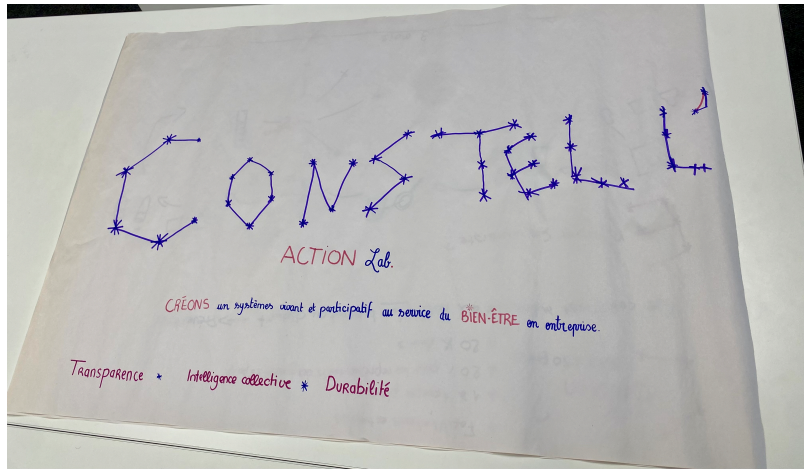 CONSTELL'
ACTION Lab.
CRÉONS un systèmes vivant et participatif au service du BIEN-ÊTRE en entreprise.
Transparence * Intelligence collective * Durabilité